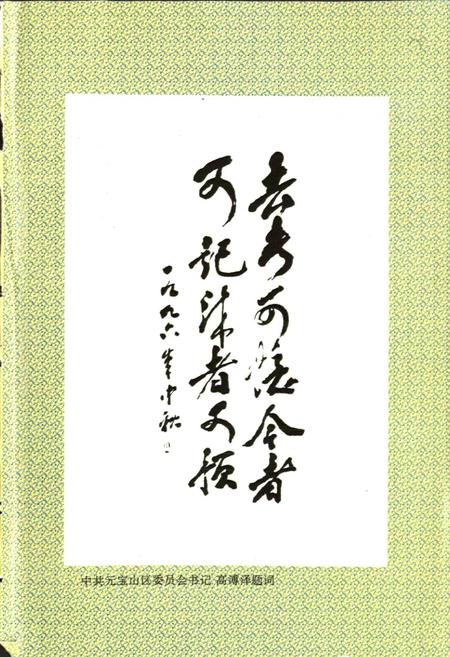 去者可憶今者
可記來者可預
一九九六年中秋
中共元宝山区委员会书记 高溥泽题词